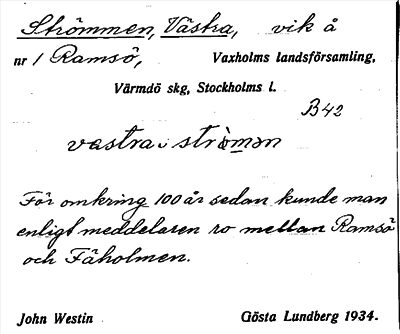 Strömmen, Västra, vik å
nr 1 Ramsö, Vaxholms landsförsamling,
Värmdö skg, Stockholms l.
B42
västra strömən
För omkring 100 år sedan kunde man
enligt meddelaren ro mellan Ramsö
och Fäholmen.
John Westin Gösta Lundberg 1934.